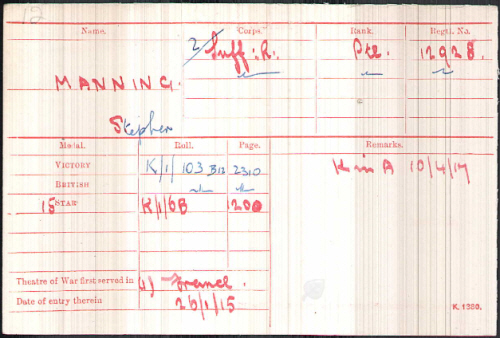 12
Name. Corps. Rank. Regtl. No.
2/ Suff: R. Pte. 12928.
MANNING.
Stephen
Medal. Roll. Page. Remarks.
VICTORY K/1/103 B12 2310 K in A 10/4/17
BRITISH
15 STAR K/1/6B 200
Theatre of War first served in (1) France.
Date of entry therein 26/1/15
K. 1380.